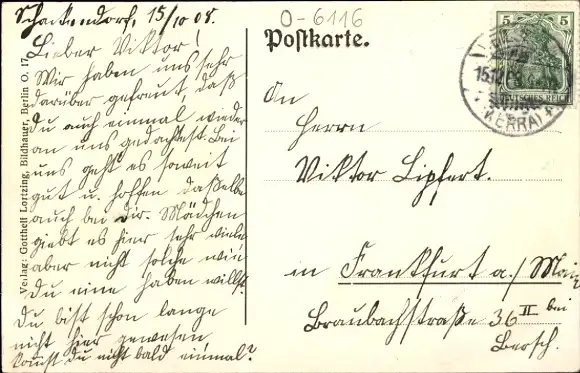 Schackendorf, 15/10 08.
O-6116
Lieber Viktor!
Wir haben uns sehr
darüber gefreut daß
du auch einmal wieder
an uns gedachtest. Bei
uns geht es soweit
gut u. hoffen dasselbe
auch bei dir. Mädchen
giebt es hier sehr viele,
aber nicht solche wie
du eine haben willst.
Du bist schon lange
nicht hier gewesen,
kommst du nicht bald einmal?
Verlag: Gotthelf Lortzing, Bildhauer, Berlin O. 17
Postkarte.
An
Herrn
Viktor Lipfert.
in Frankfurt a./Main
Braubachstraße 36 II bei
Bersch.
5 5
DEUTSCHES REICH
15.10.08
(WERRA)